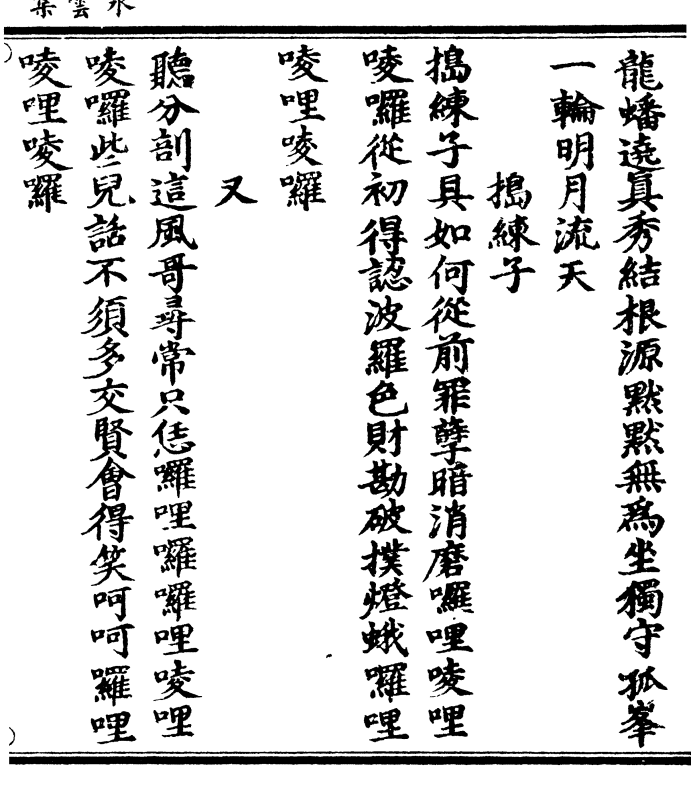 水雲集
龍蟠遶真秀結根源默默無爲坐獨守孤峯
一輪明月流天
搗練子
搗練子具如何從前罪孽暗消磨囉哩唛哩
唛囉從初得認波羅色財勘破撲燈蛾囉哩
唛哩唛囉
又
聽分剖這風哥尋常只恁囉哩囉囉哩唛哩
唛囉些兒話不須多交賢會得笑呵呵囉哩
唛哩唛囉